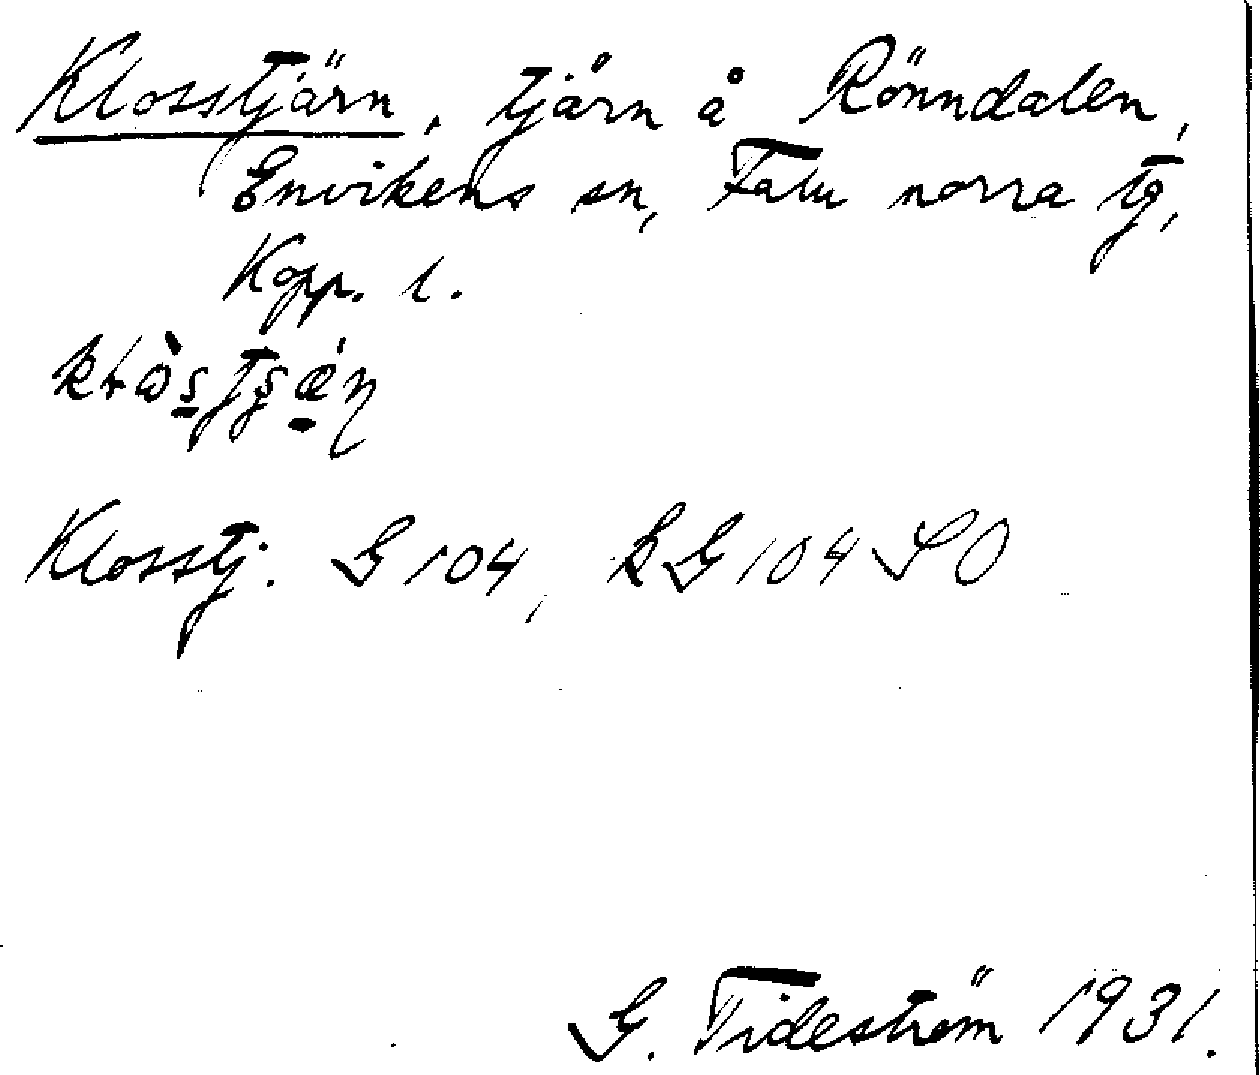 Klosstjärn, tjärn å Rönndalen,
Envikens sn, Falu norra tg,
Kopp. l.
Klosstj. G 104, kG 104 SO
G. Tideström 1931.